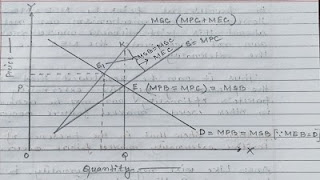 Y
MSC (MPC + MEC)
K
MSB=MSC
S = MPC
MEC
E1
Price
P
E (MPB = MPC) = MSB
D = MPB = MSB [∵ MEB=0]
O
Q
X
Quantity